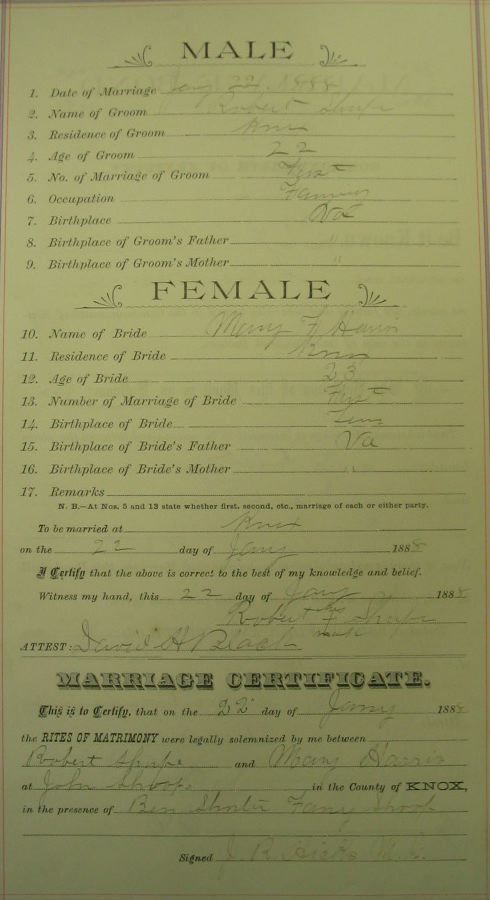 MALE
1. Date of Marriage Jany 22, 1888
2. Name of Groom Robert Shupe
3. Residence of Groom Knox
4. Age of Groom 22
5. No. of Marriage of Groom First
6. Occupation Farmer
7. Birthplace Va
8. Birthplace of Groom's Father "
9. Birthplace of Groom's Mother "
FEMALE
10. Name of Bride Mary F Harris
11. Residence of Bride Knox
12. Age of Bride 23
13. Number of Marriage of Bride First
14. Birthplace of Bride Tenn
15. Birthplace of Bride's Father Va
16. Birthplace of Bride's Mother "
17. Remarks
N. B.—At Nos. 5 and 13 state whether first, second, etc., marriage of each or either party.
To be married at Knox
on the 22 day of Jany 1888
I Certify that the above is correct to the best of my knowledge and belief.
Witness my hand, this 22 day of Jany 1888
Robert his Shupe
mark
ATTEST: David H Black
MARRIAGE CERTIFICATE.
This is to Certify, that on the 22 day of Jany 1888
the RITES OF MATRIMONY were legally solemnized by me between
Robert Shupe and Mary Harris
at John in the County of KNOX,
in the presence of Ben Fany
Signed J. R. Hicks M. G.